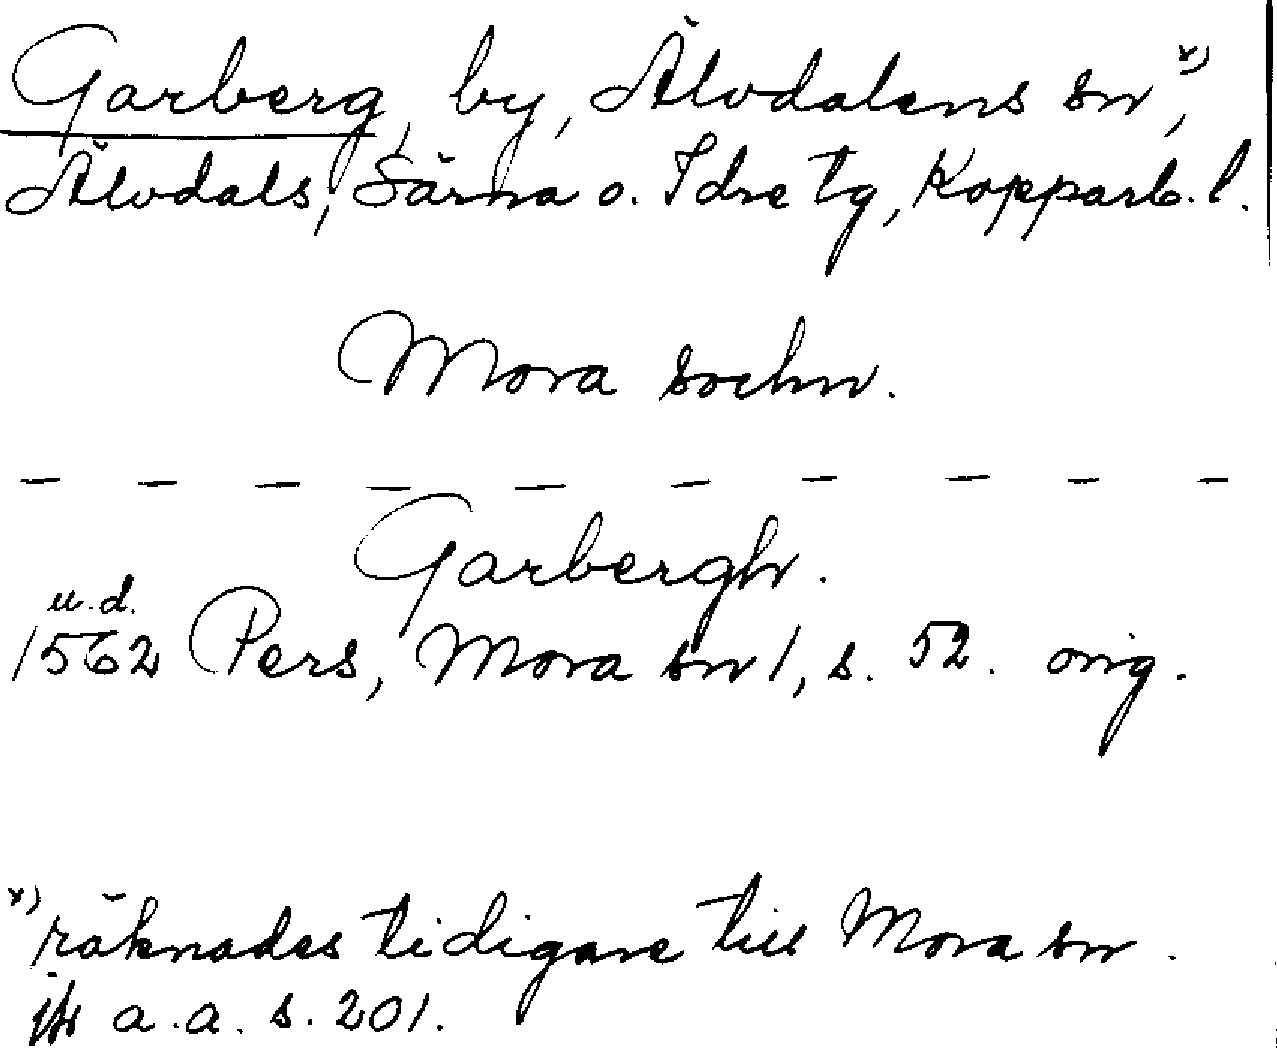 Garberg, by, Älvdalens sn x),
Älvdals, Särna o. Idre tg, Kopparb. l.
Mora sochn.
— — — — — — — — — —
Garbergh.
u.d.
1562 Pers, Mora sn 1, s. 52. orig.
x) räknades tidigare till Mora sn.
jfr a.a. s. 201.